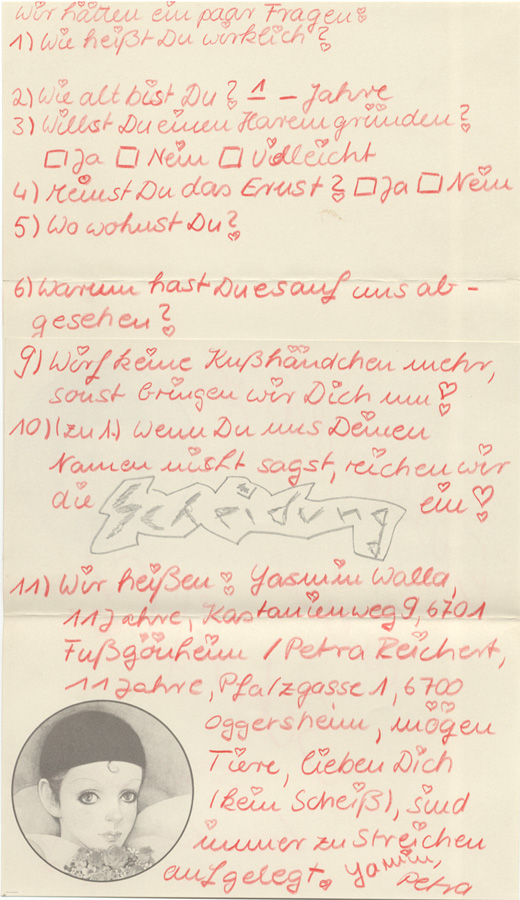 Wir hätten ein paar Fragen:
1) Wie heißt Du wirklich?
2) Wie alt bist Du? 1 – Jahre
3) Willst Du einen Harem gründen?
□ Ja □ Nein □ Vielleicht
4) Meinst Du das Ernst? □ Ja □ Nein
5) Wo wohnst Du?
6) Warum hast Du es auf uns ab-
gesehen?
9) Wirf keine Kußhändchen mehr,
sonst bringen wir Dich um!
10) (zu 1.) Wenn Du uns Deinen
Namen nisht sagst, reichen wir
die Scheidung ein!
11) Wir heißen: Yasmin Walla,
11 Jahre, Kastanienweg 9, 6701
Fußgönheim / Petra Reichert,
11 Jahre, Pfalzgasse 1, 6700
Oggersheim, mögen
Tiere, lieben Dich
(kein Scheiß), sind
immer zu Streichen
aufgelegt. Yamin,
Petra